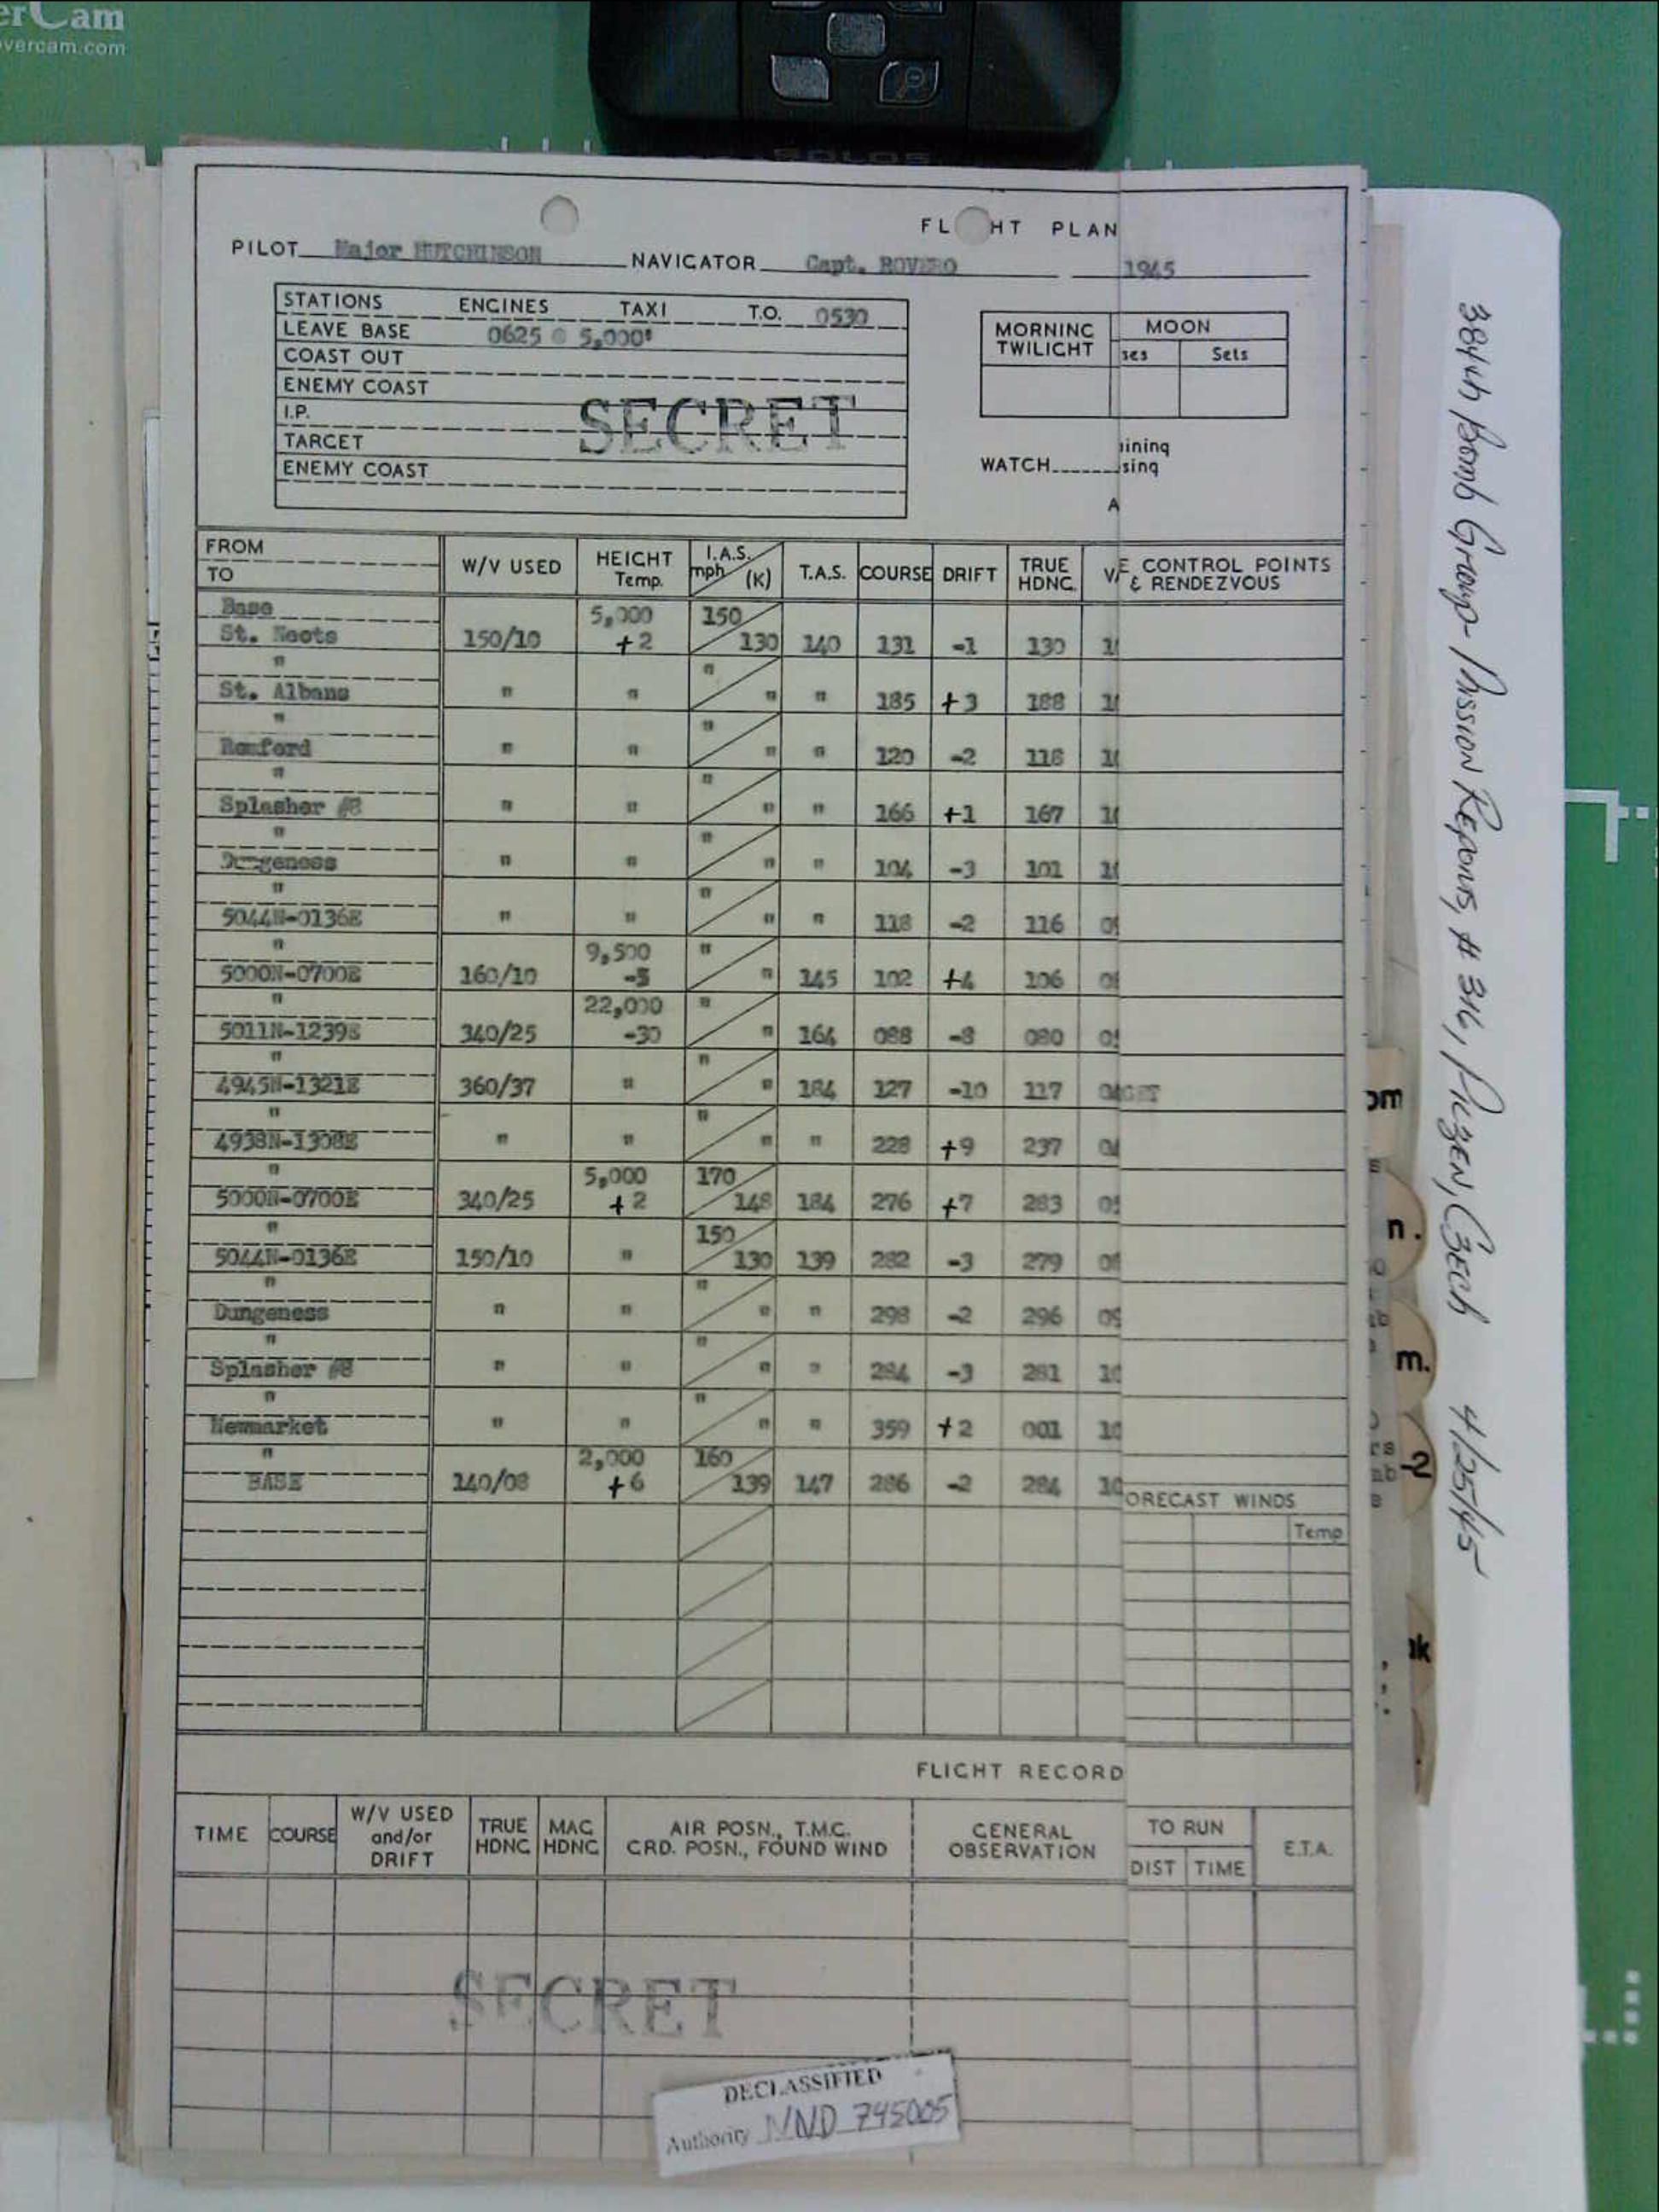 erCam
vercam.com
FL HT PLAN
PILOT Major HUTCHINSON NAVIGATOR Capt. ROVERO 1945
STATIONS ENGINES TAXI T.O. 0530
LEAVE BASE 0625 @ 5,000'
COAST OUT
ENEMY COAST
I.P.
TARGET
ENEMY COAST
SECRET
MORNING TWILIGHT MOON
ses Sets
WATCH
ining
sing
A
FROM
TO
W/V USED HEIGHT Temp. I.A.S. mph (K) T.A.S. COURSE DRIFT TRUE HDNG. V E CONTROL POINTS & RENDEZVOUS
Base 5,000 150
St. Neots 150/10 +2 130 140 131 -1 130 1
" "
St. Albans " " " " 185 +3 188 1
" "
Romford " " " " 120 -2 118 1
" "
Splasher #8 " " " " 166 +1 167 1
" "
Dungeness " " " " 104 -3 101 1
" "
5044N-0136E " " " " 118 -2 116 0
" 9,500 "
5000N-0700E 160/10 -5 " 145 102 +4 106 0
" 22,000 "
5011N-1239E 340/25 -30 " 164 088 -8 080 0
" "
4945N-1321E 360/37 " " 184 127 -10 117 0 GET
" "
4938N-1308E " " " " 228 +9 237 0
" 5,000 170
5000N-0700E 340/25 +2 148 184 276 +7 283 0
" 150
5044N-0136E 150/10 " 130 139 282 -3 279 0
" "
Dungeness " " " " 298 -2 296 09
" "
Splasher #8 " " " " 284 -3 281 10
" "
Newmarket " " " " 359 +2 001 10
" 2,000 160
BASE 140/08 +6 139 147 286 -2 284 10
ORECAST WINDS
Temp
FLIGHT RECORD
TIME COURSE W/V USED and/or DRIFT TRUE HDNG MAG HDNG AIR POSN., T.M.G. GRD. POSN., FOUND WIND GENERAL OBSERVATION TO RUN DIST TIME E.T.A.
SECRET
DECLASSIFIED
Authority NND 745005
384th Bomb Group - Mission Reports, # 316, Pilzen, Czech 4/25/45
om
n.
m.
-2
ak